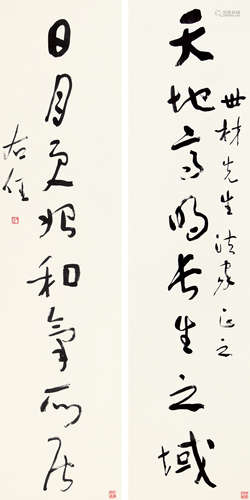 天地高明長生之域
世材先生法家正之
日月更始和氣所居
右任